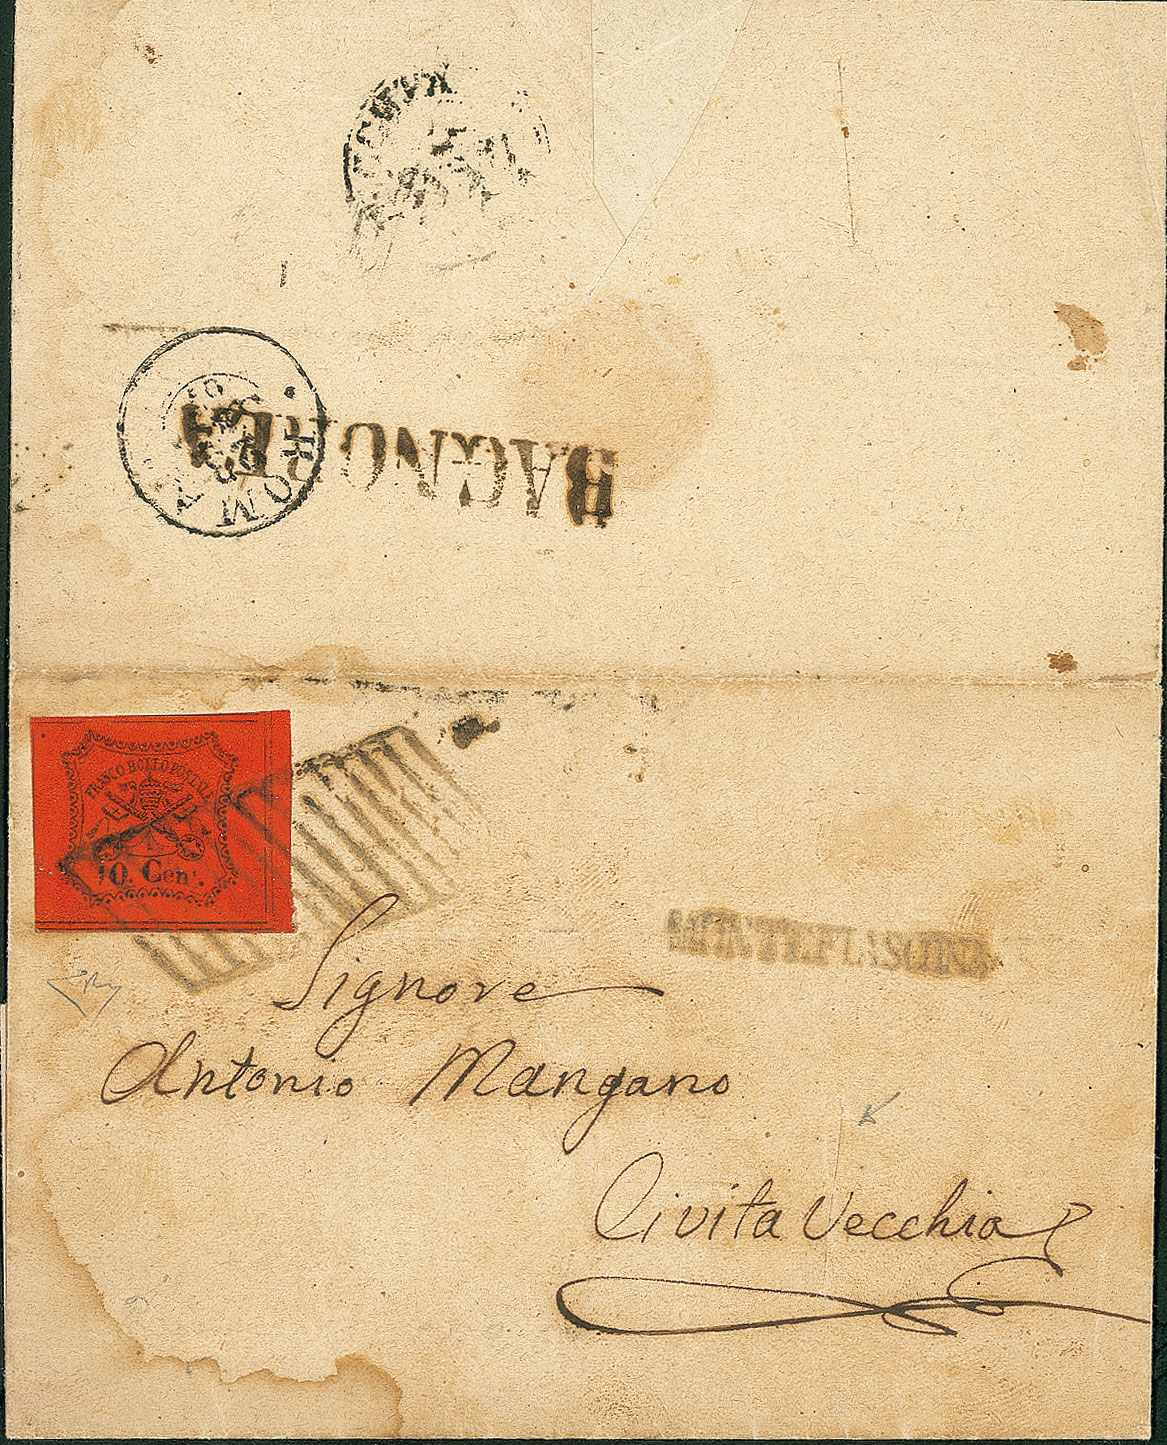 ROMA
BAGNOREA
FRANCO BOLLO POSTALE
10. Cent.
MONTEFIASCONE
Signore
Antonio Mangano
Civita Vecchia